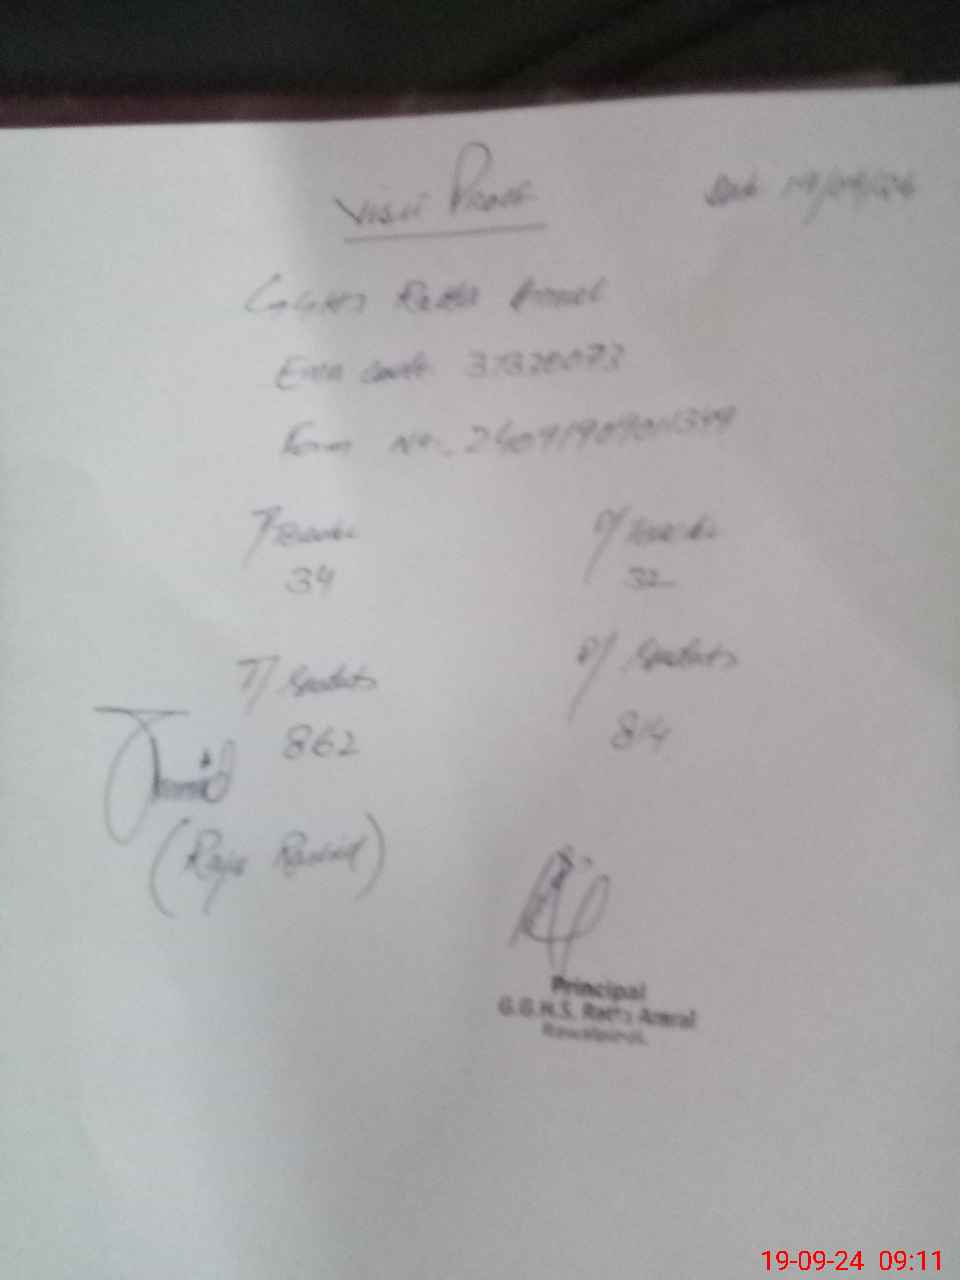 Visit Proof
Date 19/09/24
GGHS Ratta Amral
Emis Code 37320073
Form No.
T/Teachers P/Teachers
34 32
T/Students P/Students
862 814
(Raja Rashid)
Principal
G.G.H.S. Ratta Amral
Rawalpindi.
19-09-24 09:11